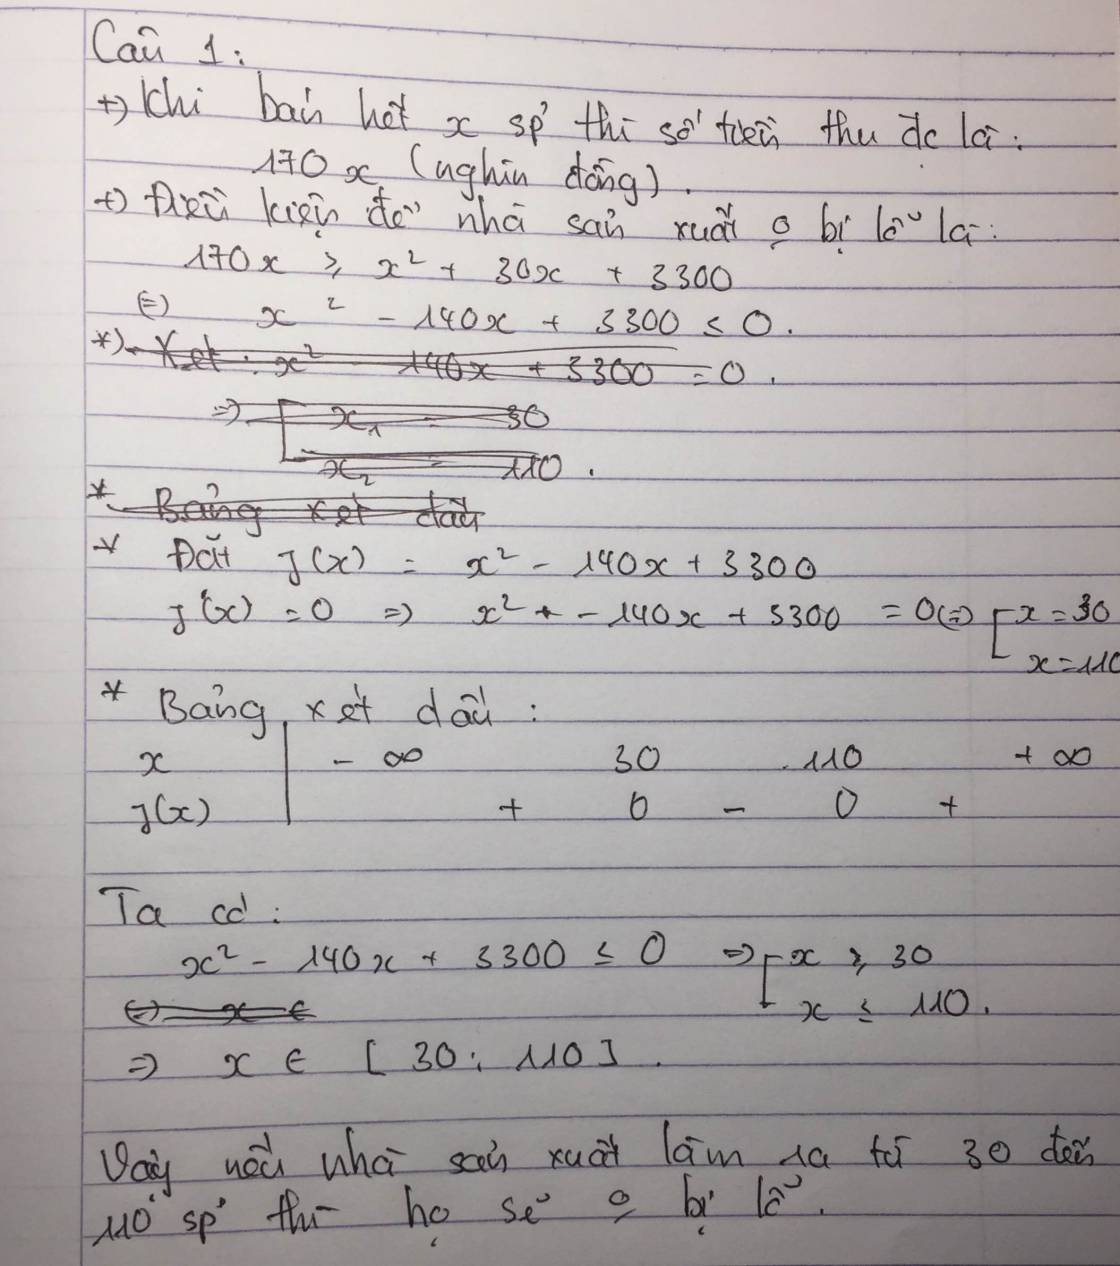 Câu 1:
+) Khi bán hết x sp' thì số tiền thu đc là:
170x (nghìn đồng).
+) Điều kiện để nhà sản xuất o bị lỗ là:
170x ≥ x² + 30x + 3300
(=) x² - 140x + 3300 ≤ 0.
*) Xét: x² - 140x + 3300 = 0.
=> [ x₁ = 30
x₂ = 110.
* Bảng xét dấu
* Đặt f(x) = x² - 140x + 3300
f(x) = 0 => x² + - 140x + 3300 = 0 (=) [ x = 30
x = 110
* Bảng xét dấu:
x | - ∞ 30 110 + ∞
f(x) | + 0 - 0 +
Ta có:
x² - 140x + 3300 ≤ 0 => [ x ≥ 30
(=) x ∈ x ≤ 110.
=> x ∈ [30; 110].
Vậy nếu nhà sản xuất làm ra từ 30 đến
110 sp' thì họ sẽ o bị lỗ.